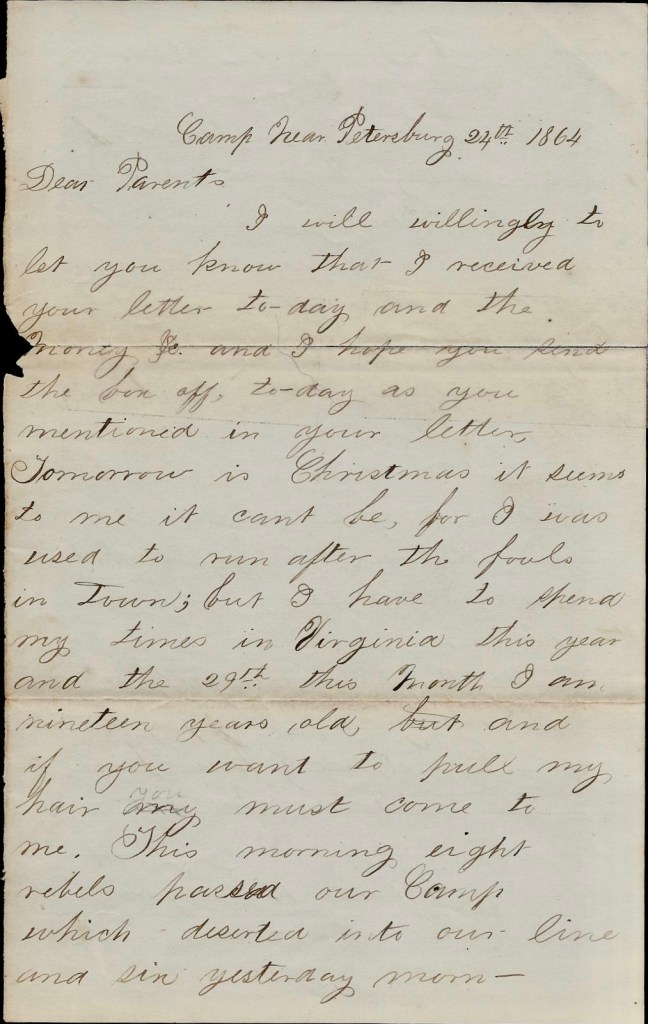 Camp Near Petersburg 24th 1864
Dear Parents
I will willingly to
let you know that I received
your letter to-day and the
Money &c. and I hope you send
the box off, to-day as you
mentioned in your letter,
Tomorrow is Christmas it seems
to me it cant be, for I was
used to run after the fools
in Town; but I have to spend
my times in Virginia this year
and the 29th this Month I am
nineteen years old, but and
if you want to pull my
you
hair my must come to
me. This morning eight
rebels passed our Camp
which deserted into our line
and six yesterday morn-